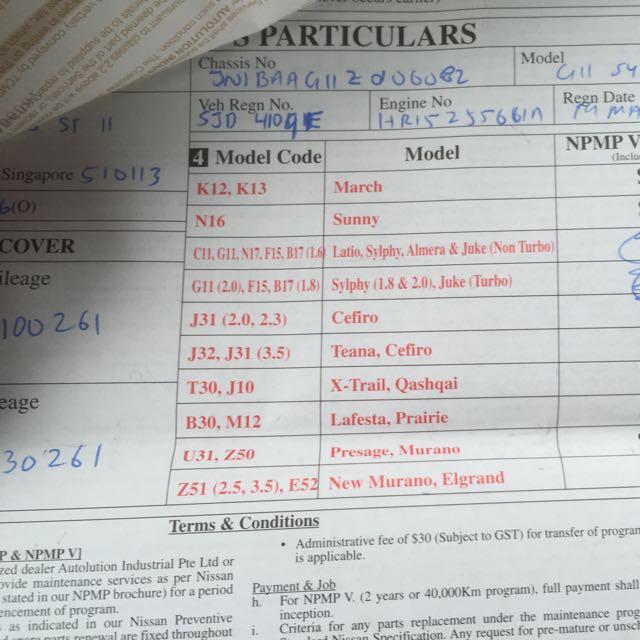 S PARTICULARS
Chassis No
Model
JN1BAAG11Z0106082
G11
Veh Regn No.
Engine No
Regn Date
HR15255661A
ST 11
Singapore 510113
(O)
4 Model Code
Model
NPMP V
K12, K13
March
N16
Sunny
COVER
C11, G11, N17, F15, B17 (1.6)
Latio, Sylphy, Almera & Juke (Non Turbo)
ileage
G11 (2.0), F15, B17 (1.8)
Sylphy (1.8 & 2.0), Juke (Turbo)
100261
J31 (2.0, 2.3)
Cefiro
J32, J31 (3.5)
Teana, Cefiro
eage
T30, J10
X-Trail, Qashqai
B30, M12
Lafesta, Prairie
30261
U31, Z50
Presage, Murano
Z51 (2.5, 3.5), E52
New Murano, Elgrand
Terms & Conditions
P & NPMP V]
zed dealer Autolution Industrial Pte Ltd or
ovide maintenance services as per Nissan
stated in our NPMP brochure) for a period
encement of program.
as indicated in our Nissan Preventive
parts renewal are fixed throughout
• Administrative fee of $30 (Subject to GST) for transfer of program
is applicable.
Payment & Job
h. For NPMP V. (2 years or 40,000Km program), full payment shall
inception.
i. Criteria for any parts replacement under the maintenance
Nissan Specification. Any request for pre-mature or